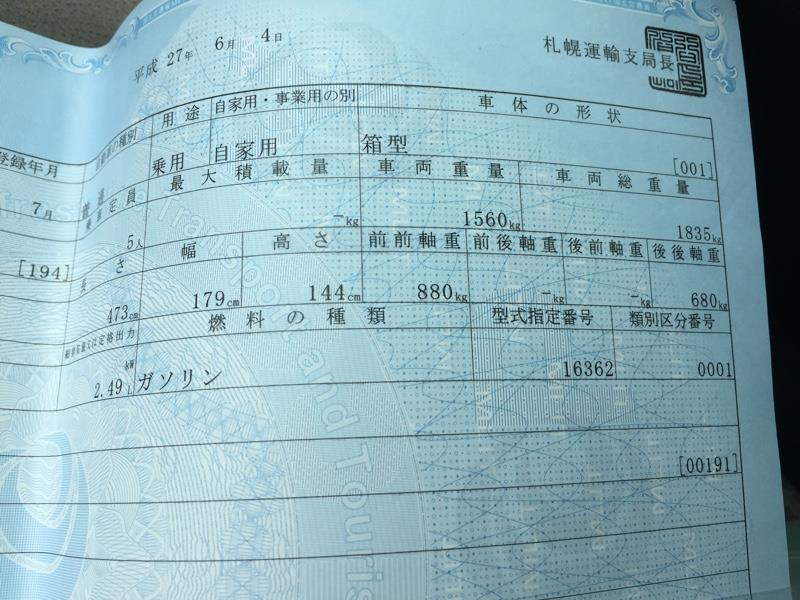 平成 27年 6月 4日
札幌運輸支局長
登録年月 の種別 用途 自家用・事業用の別 車体の形状
7月 普通 乗用 自家用 箱型 [001]
乗車定員 最大積載量 車両重量 車両総重量
[194] 5人 -kg 1560kg 1835kg
長さ 幅 高さ 前前軸重 前後軸重 後前軸重 後後軸重
473cm 179cm 144cm 880kg -kg -kg 680kg
又は定格出力 燃料の種類 型式指定番号 類別区分番号
kW
2.49L ガソリン 16362 0001
[00191]
Transport and Touris